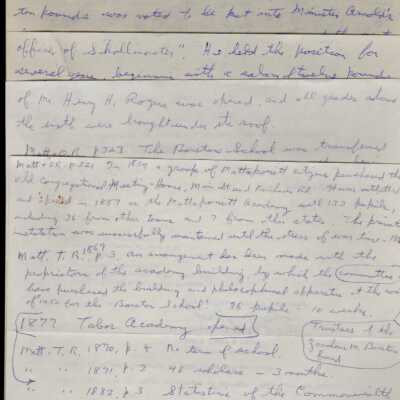 ten pounds was voted to be put into Minister
office of Schollmaster". He held the position for
several years, beginning with a salary of twelve pounds
of Mr. Henry H. Rogers was opened, and all grades above
the sixth were brought under its roof.
The Barstow School was transferred
In a group of Mattapoisett citizens purchased the
old Congregational Meeting-House, Main St and
and opened in 1857 as the Mattapoisett Academy with 133 pupils,
including 36 from other towns and 7 from the state. The
institution was successfully maintained until the stress of war time.
Matt. T. R. 1867 p. 3 An arrangement has been made with the
proprietors of the academy building, by which the committee
have purchased the building and philosophical apparatus at the
of 1050 for the Barstow School. 96 pupils - 10 weeks.
1877 Tabor Academy opened
Trustees of the
Barstow
fund
Matt. T. R. 1870, p. 4 No term of school.
" " 1871, p. 2 48 scholars - 3 months.
" " 1882, p. 3 Statutes of the Commonwealth